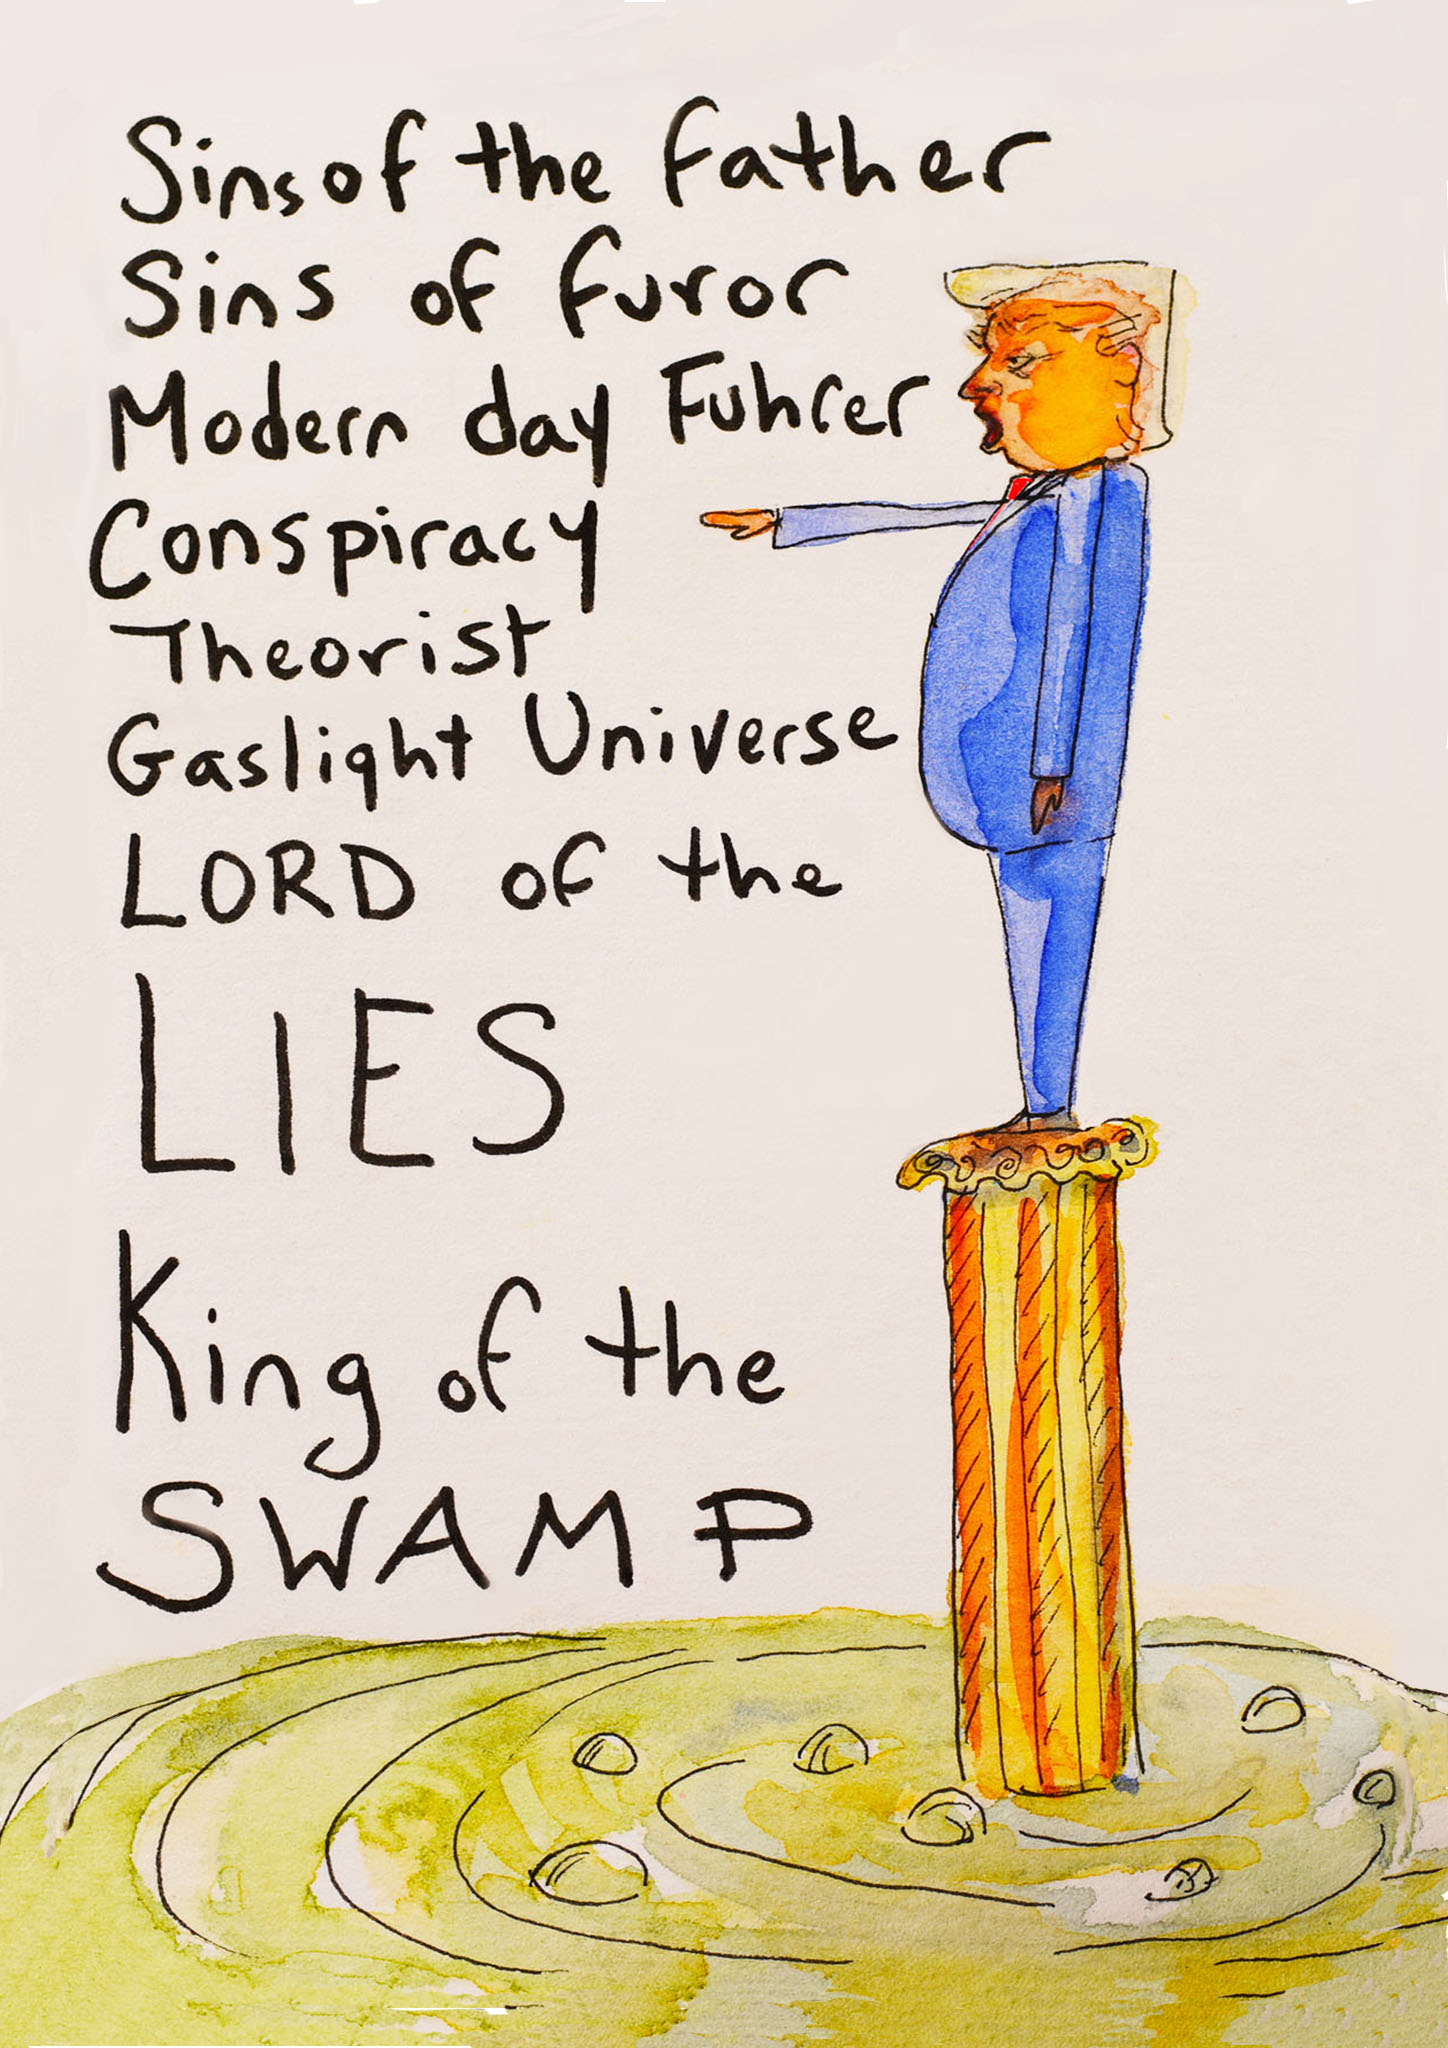 Sins of the father
Sins of furor
Modern day Fuhrer
Conspiracy
Theorist
Gaslight Universe
LORD of the
LIES
King of the
SWAMP